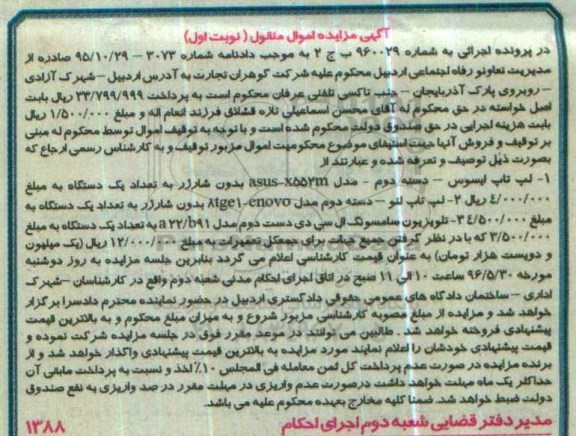 آگهی مزایده اموال منقول ( نوبت اول)
در پرونده اجرائی به شماره ۹۶۰۰۲۹ ب ج ۲ به موجب دادنامه شماره ۳۰۷۳ – ۹۵/۱۰/۲۹ صادره از
مدیریت تعاونو رفاه اجتماعی اردبیل محکوم علیه شرکت گوهران تجارت به آدرس اردبیل – شهرک آزادی
– روبروی پارک آذربایجان – جنب تاکسی تلفنی عرفان محکوم است به پرداخت ۳۳/۷۹۹/۹۹۹ ریال بابت
اصل خواسته در حق محکوم له آقای محسن اسماعیلی تازه قشلاق فرزند انعام اله و مبلغ ۱/۵۰۰/۰۰۰ ریال
بابت هزینه اجرایی در حق صندوق دولت محکوم شده است و با توجه به توقیف اموال توسط محکوم له مبنی
بر توقیف و فروش آنها جهت استیفای موضوع محکومیت اموال مزبور توقیف و به کارشناس رسمی ارجاع که
بصورت ذیل توصیف و تعرفه شده و عبارتند از
۱- لپ تاپ ایسوس – دسته دوم – مدل asus-x۵۵۲m بدون شارژر به تعداد یک دستگاه به مبلغ
۴/۰۰۰/۰۰۰ ریال ۲- لپ تاپ لنو – دسته دوم مدل ۸tge۱-enovo بدون شارژر به تعداد یک دستگاه به
مبلغ ۳۴/۵۰۰/۰۰۰- تلویزیون سامسونگ ال سی دی دست دوم مدل a۲۲/b۹۱ به تعداد یک دستگاه به مبلغ
۳/۵۰۰/۰۰۰ که با در نظر گرفتن جمیع جهات برای جمعکل تعمیرات به مبلغ ۱۲/۰۰۰/۰۰۰ ریال (یک میلیون
و دویست هزار تومان) به عنوان قیمت کارشناسی اعلام می گردد بنابرین جلسه مزایده به روز دوشنبه
مورخه ۹۶/۵/۳۰ ساعت ۱۰ الی ۱۱ صبح در اتاق اجرای احکام مدنی شعبه دوم واقع در کارشناسان –شهرک
اداری – ساختمان دادگاه های عمومی حقوقی دادگستری اردبیل در حضور نماینده محترم دادسرا برگزار
خواهد شد و مزایده از مبلغ مصوبه کارشناسی مزبور شروع و به میزان مبلغ محکوم و به بالاترین قیمت
پیشنهادی فروخته خواهد شد . طالبین می توانند در موعد مقرر فوق در جلسه مزایده شرکت نموده و
قیمت پیشنهادی خودشان را اعلام نمایند مورد مزایده به بالاترین قیمت پیشنهادی واگذار خواهد شد و از
برنده مزایده در صورت عدم پرداخت کل ثمن معامله فی المجلس ۱۰٪ اخذ و نسبت به پرداخت مابقی آن
حداکثر یک ماه مهلت خواهد داشت درصورت عدم واریزی در مهلت مقرر در صد واریزی به نفع صندوق
دولت ضبط خواهد شد. ضمنا کلیه مخارج بعهده محکوم علیه می باشد.
مدیر دفتر قضایی شعبه دوم اجرای احکام ۱۳۸۸